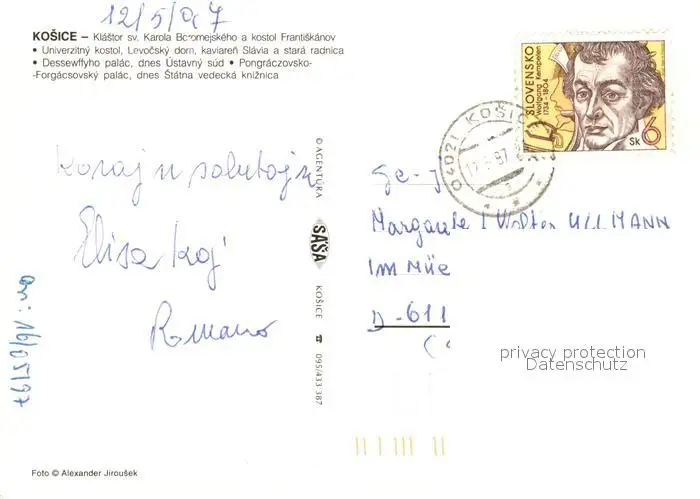 12/5/97
KOŠICE – Kláštor sv. Karola Boromejského a kostol Františkánov
• Univerzitný kostol, Levočský dom, kaviareň Slávia a stará radnica
• Dessewffyho palác, dnes Ústavný súd • Pongráczovsko-
-Forgácsovský palác, dnes Štátna vedecká knižnica
Koraj n salutojn
Elisa kaj
Romano
an: 16/05/97
© AGENTÚRA SÁŠA KOŠICE ☎ 095/433 387
SLOVENSKO
Wolfgang Kempelen
1734 - 1804
Sk 6
04021 KOŠICE
Ge-
Margarete / Walter ULLMANN
Im Müe
D-611
privacy protection
Datenschutz
Foto © Alexander Jiroušek